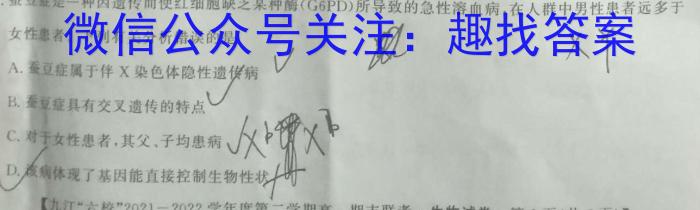 蚕豆症是一种因遗传而使红细胞缺乏某种酶(G6PD)所导致的急性溶血病,在人群中男性患者远多于
女性患者
微信公众号关注：趣找答案
分析错误的是
A.蚕豆症属于伴X染色体隐性遗传病
B.蚕豆症具有交叉遗传的特点
C.对于女性患者,其父、子均患病
D.该病体现了基因能直接控制生物性状
【九江"六校"2021-2022学年度第二学期高
期末联考